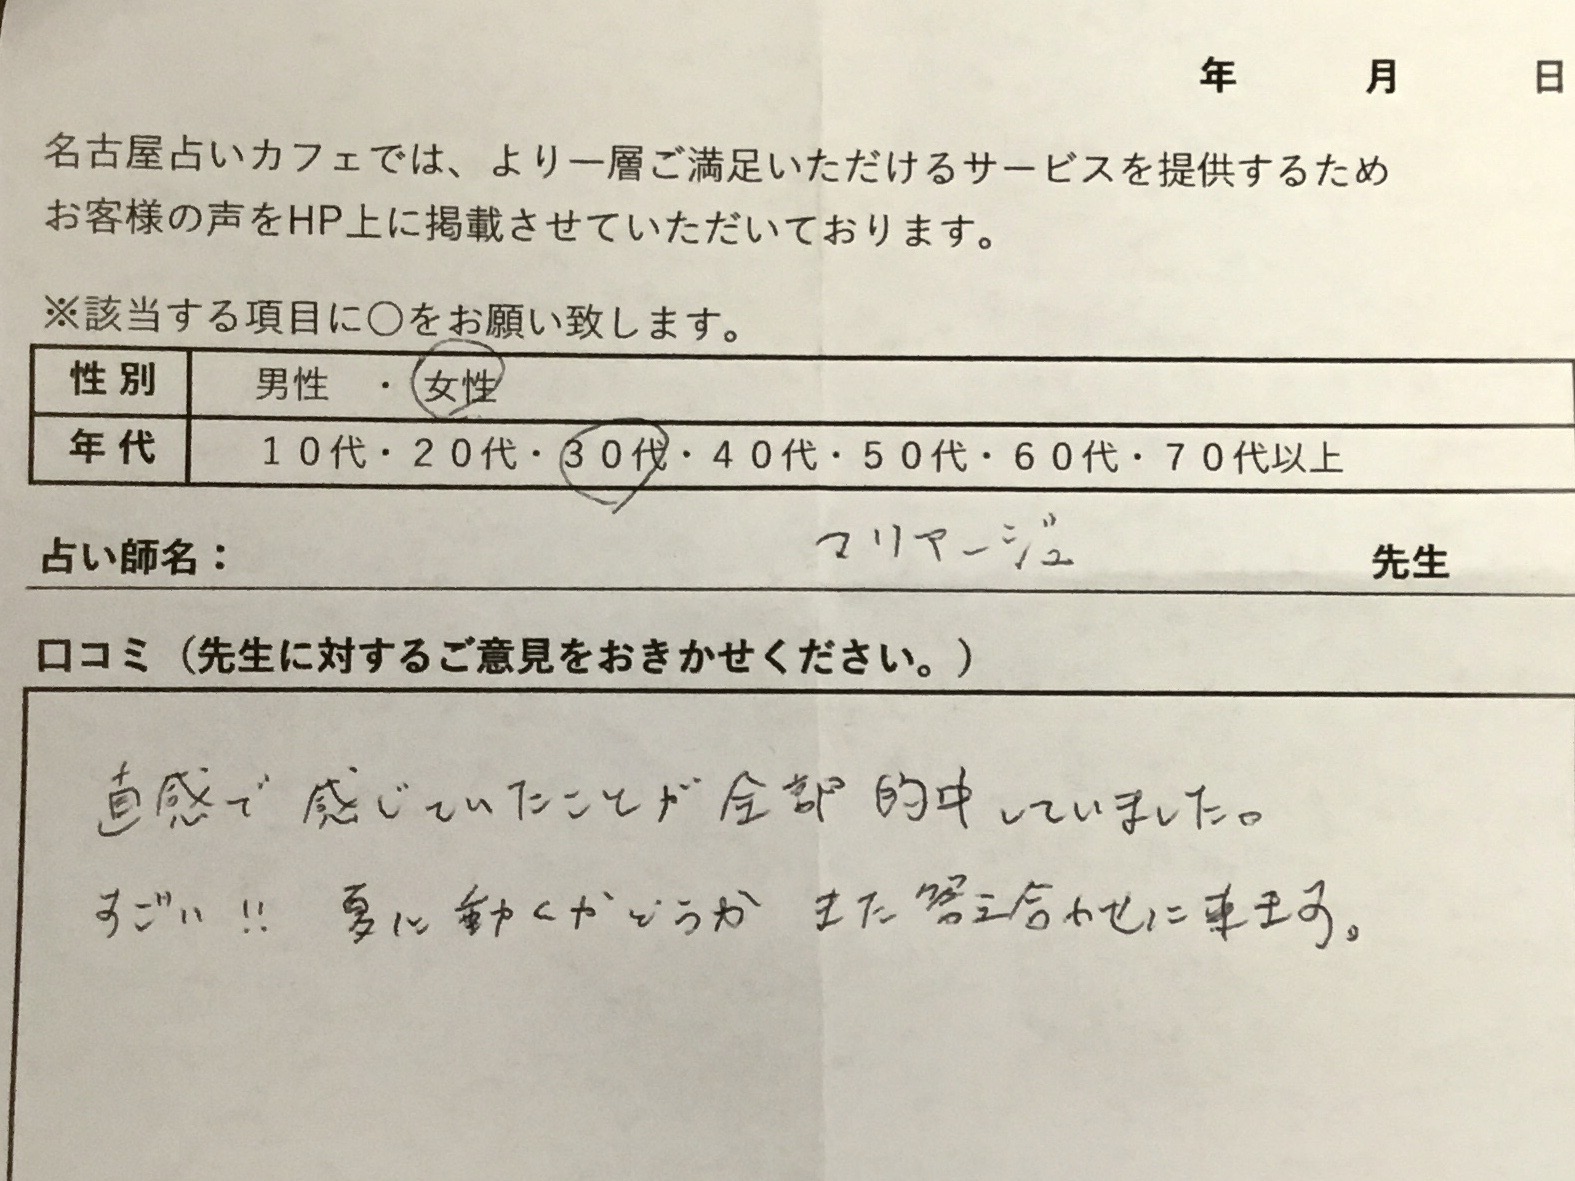 年　月　日
名古屋占いカフェでは、より一層ご満足いただけるサービスを提供するため
お客様の声をHP上に掲載させていただいております。
※該当する項目に〇をお願い致します。
性別　男性　・　女性
年代　１０代・２０代・３０代・４０代・５０代・６０代・７０代以上
占い師名：　マリアージュ　先生
口コミ（先生に対するご意見をおきかせください。）
直感で感じていたことが全部的中していました。
すごい!!　夏に動くかどうか　また答え合わせに来ます。